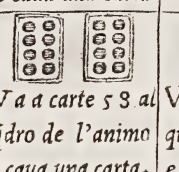 V a a carte 5 8. al V
dro de l'animo qu
cava una carta. e